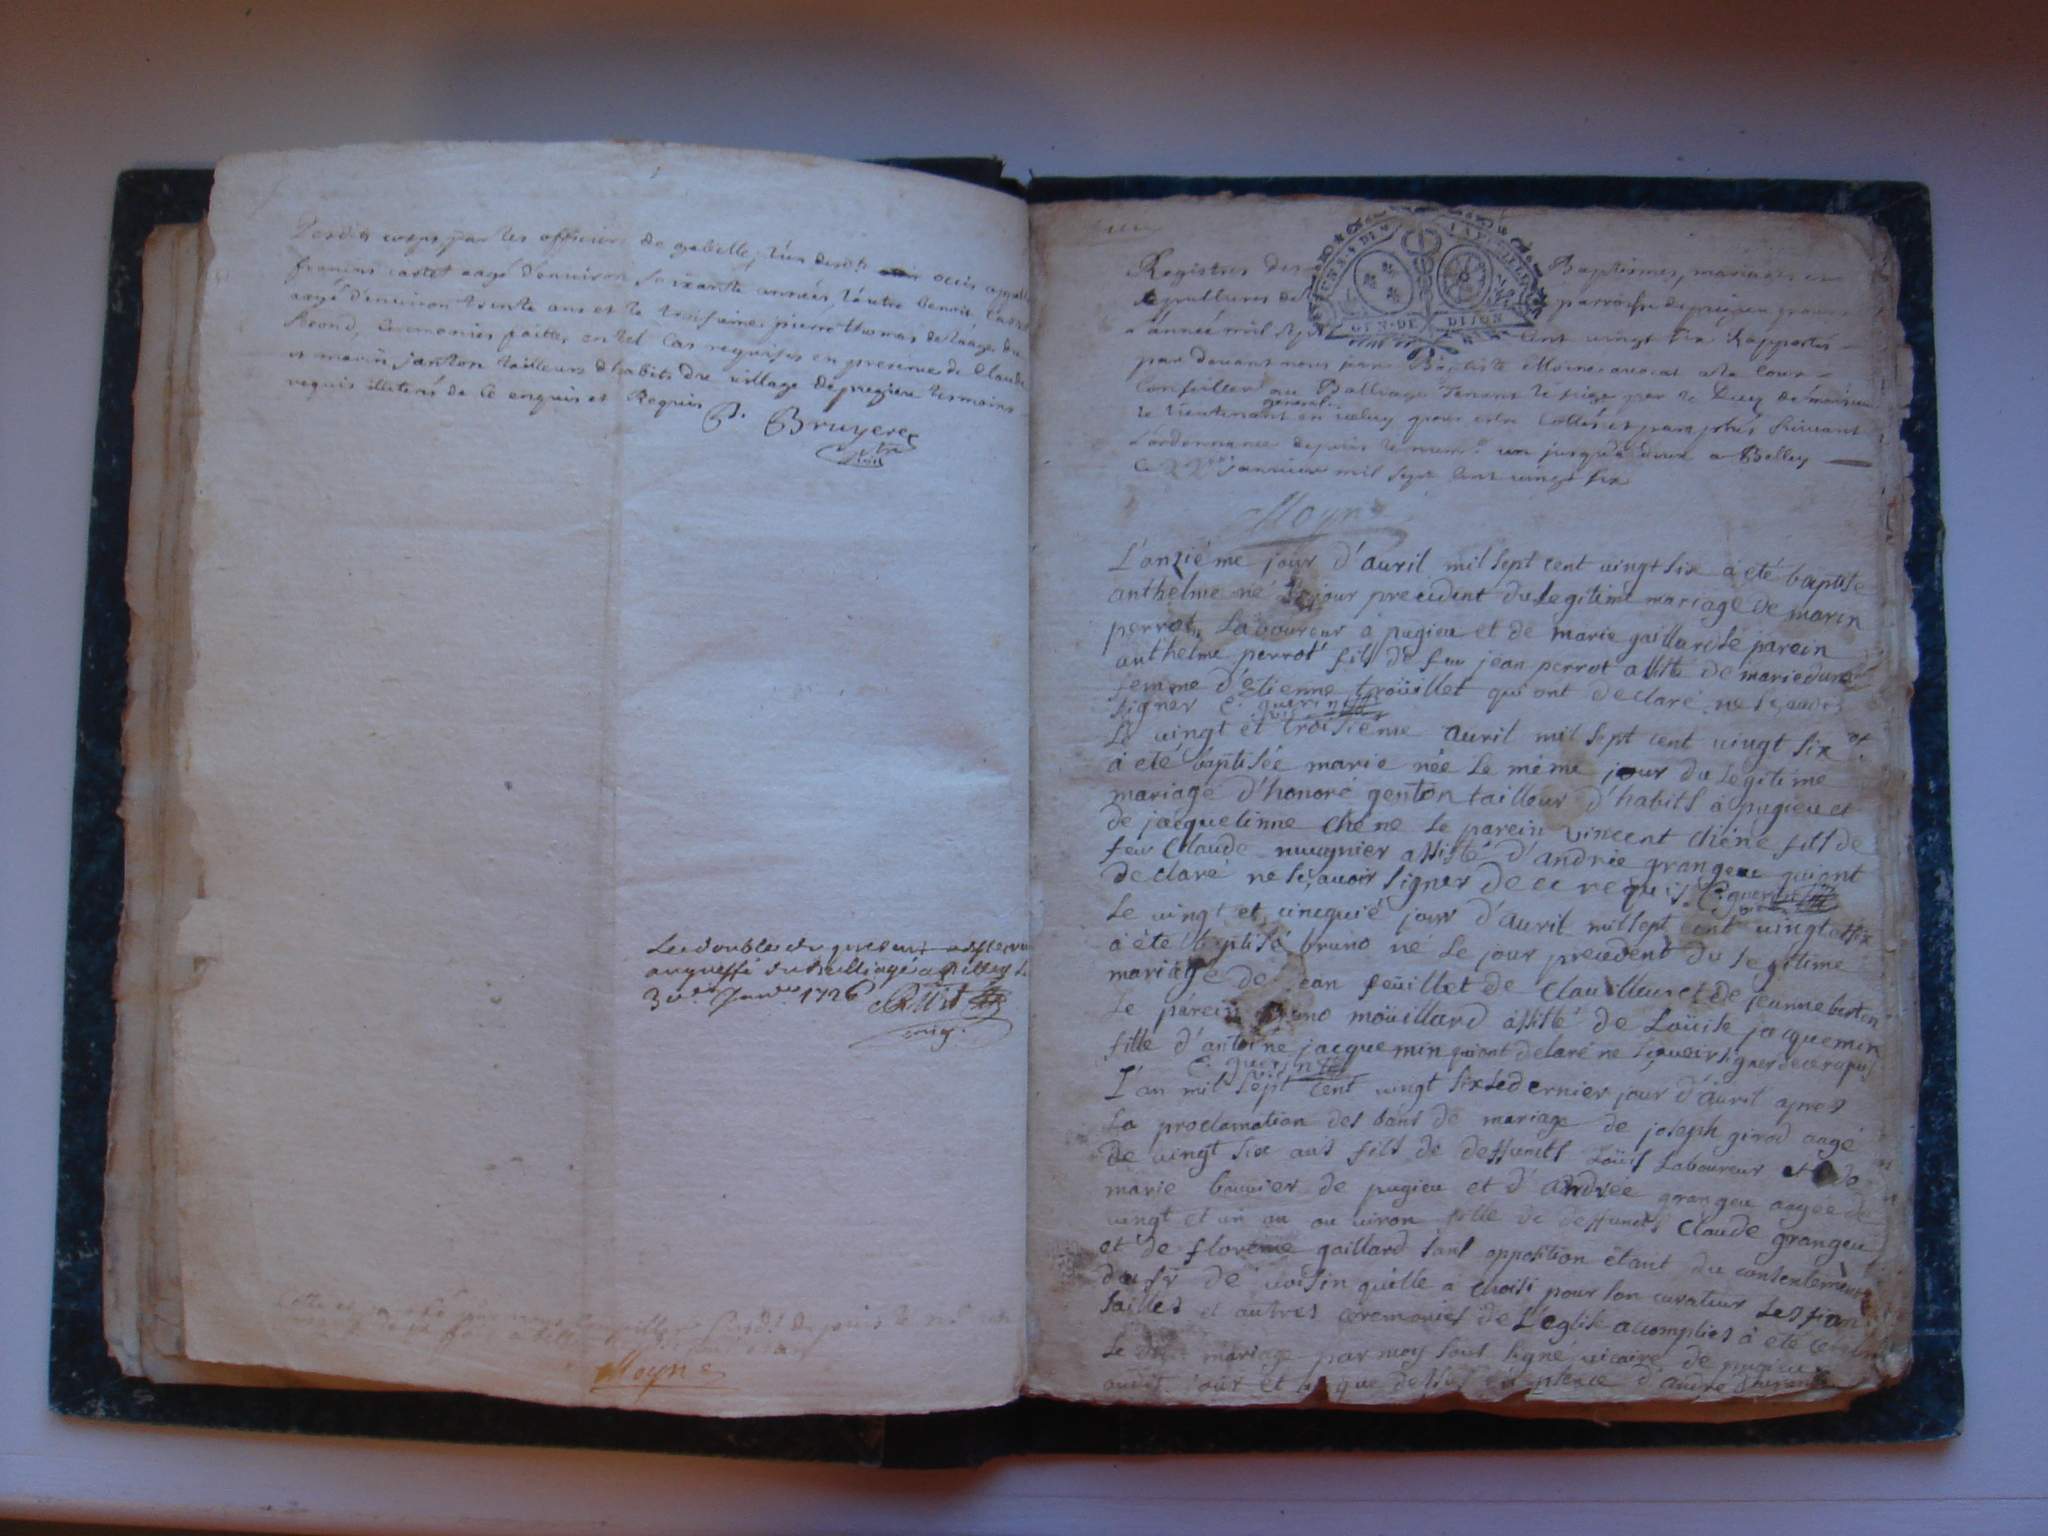 corps par les officiers de gabelle, l'un desdits occis appellé
françois castel aagé d'environ soixante années, l'autre benoit
aagé d'environ trente ans et le troisieme pierre thomas de l'aage du
second, ceremonies faittes en tel cas requises en presence de Claude
et marin janton tailleurs d'habits du village de pugieu temoins
requis illiterés de ce enquis et Requis
B. Bruyere
Le double du
au greffe du balliage a Belley le
3e Janv. 1726
Moyne
Registres des Baptismes, mariages et
sepultures de parroisse de pugieu pour
l'année mil sept cent vingt six Rapportés
par devant nous jean Baptiste Moyne avocat a la Cour
Conseiller au Balliage Tenant le siege par le Decez de monsieur
le Lieutenant general en iceluy pour estre cottés et paraphés suivant
l'ordonnance depuis le num. un jusqu'a douze a Belley
Ce janvier mil sept cent vingt six
Moyne
GEN. DE DIJON
L'onziéme jour d'avril mil sept cent vingt six a été baptisé
anthelme né le jour precedent du legitime mariage de marin
perrot, Laboureur à pugieu et de marie gaillard le parein
anthelme perrot fils de feu jean perrot assisté de marie
femme d'etienne troüillet qui ont declaré ne sçavoir
signer C. guerin
Le vingt et troisiéme avril mil sept cent vingt six
à eté baptisée marie née le méme jour du legitime
mariage d'honoré genton tailleur d'habits à pugieu et
de jacquelinne chéne le parein vincent chéne fils de
feu Claude assisté d'andrée grangeu qui ont
declaré ne sçavoir signer de ce requis. C. guerin
Le vingt et cinquié jour d'avril mil sept cent vingt six
à été baptisé bruno né le jour precedent du legitime
mariage de jean feüillet de Clavilleur et de jeanne berton
le parein bruno moüillard assisté de Loüise jacquemin
fille d'antoine jacquemin qui ont delaré ne sçavoir signer de ce requis
C. guerin
L'an mil sept cent vingt six le dernier jour d'avril apres
la proclamation des bans de mariage de joseph girod aagé
de vingt six ans fils de deffuncts Loüis Laboureur et de
marie bouvier de pugieu et d'andrée grangeu aagée de
vingt et un an ou viron fille de deffuncts Claude grangeu
et de florence gaillard sans opposition étant du consentement
du Sr de voisin qu'elle a choisi pour son curateur les fian
sailles et autres ceremonies de L'eglise acomplies à été
le dit mariage par moy sous signé vicaire de pugieu
audit jour et que dessus en presence d'andre